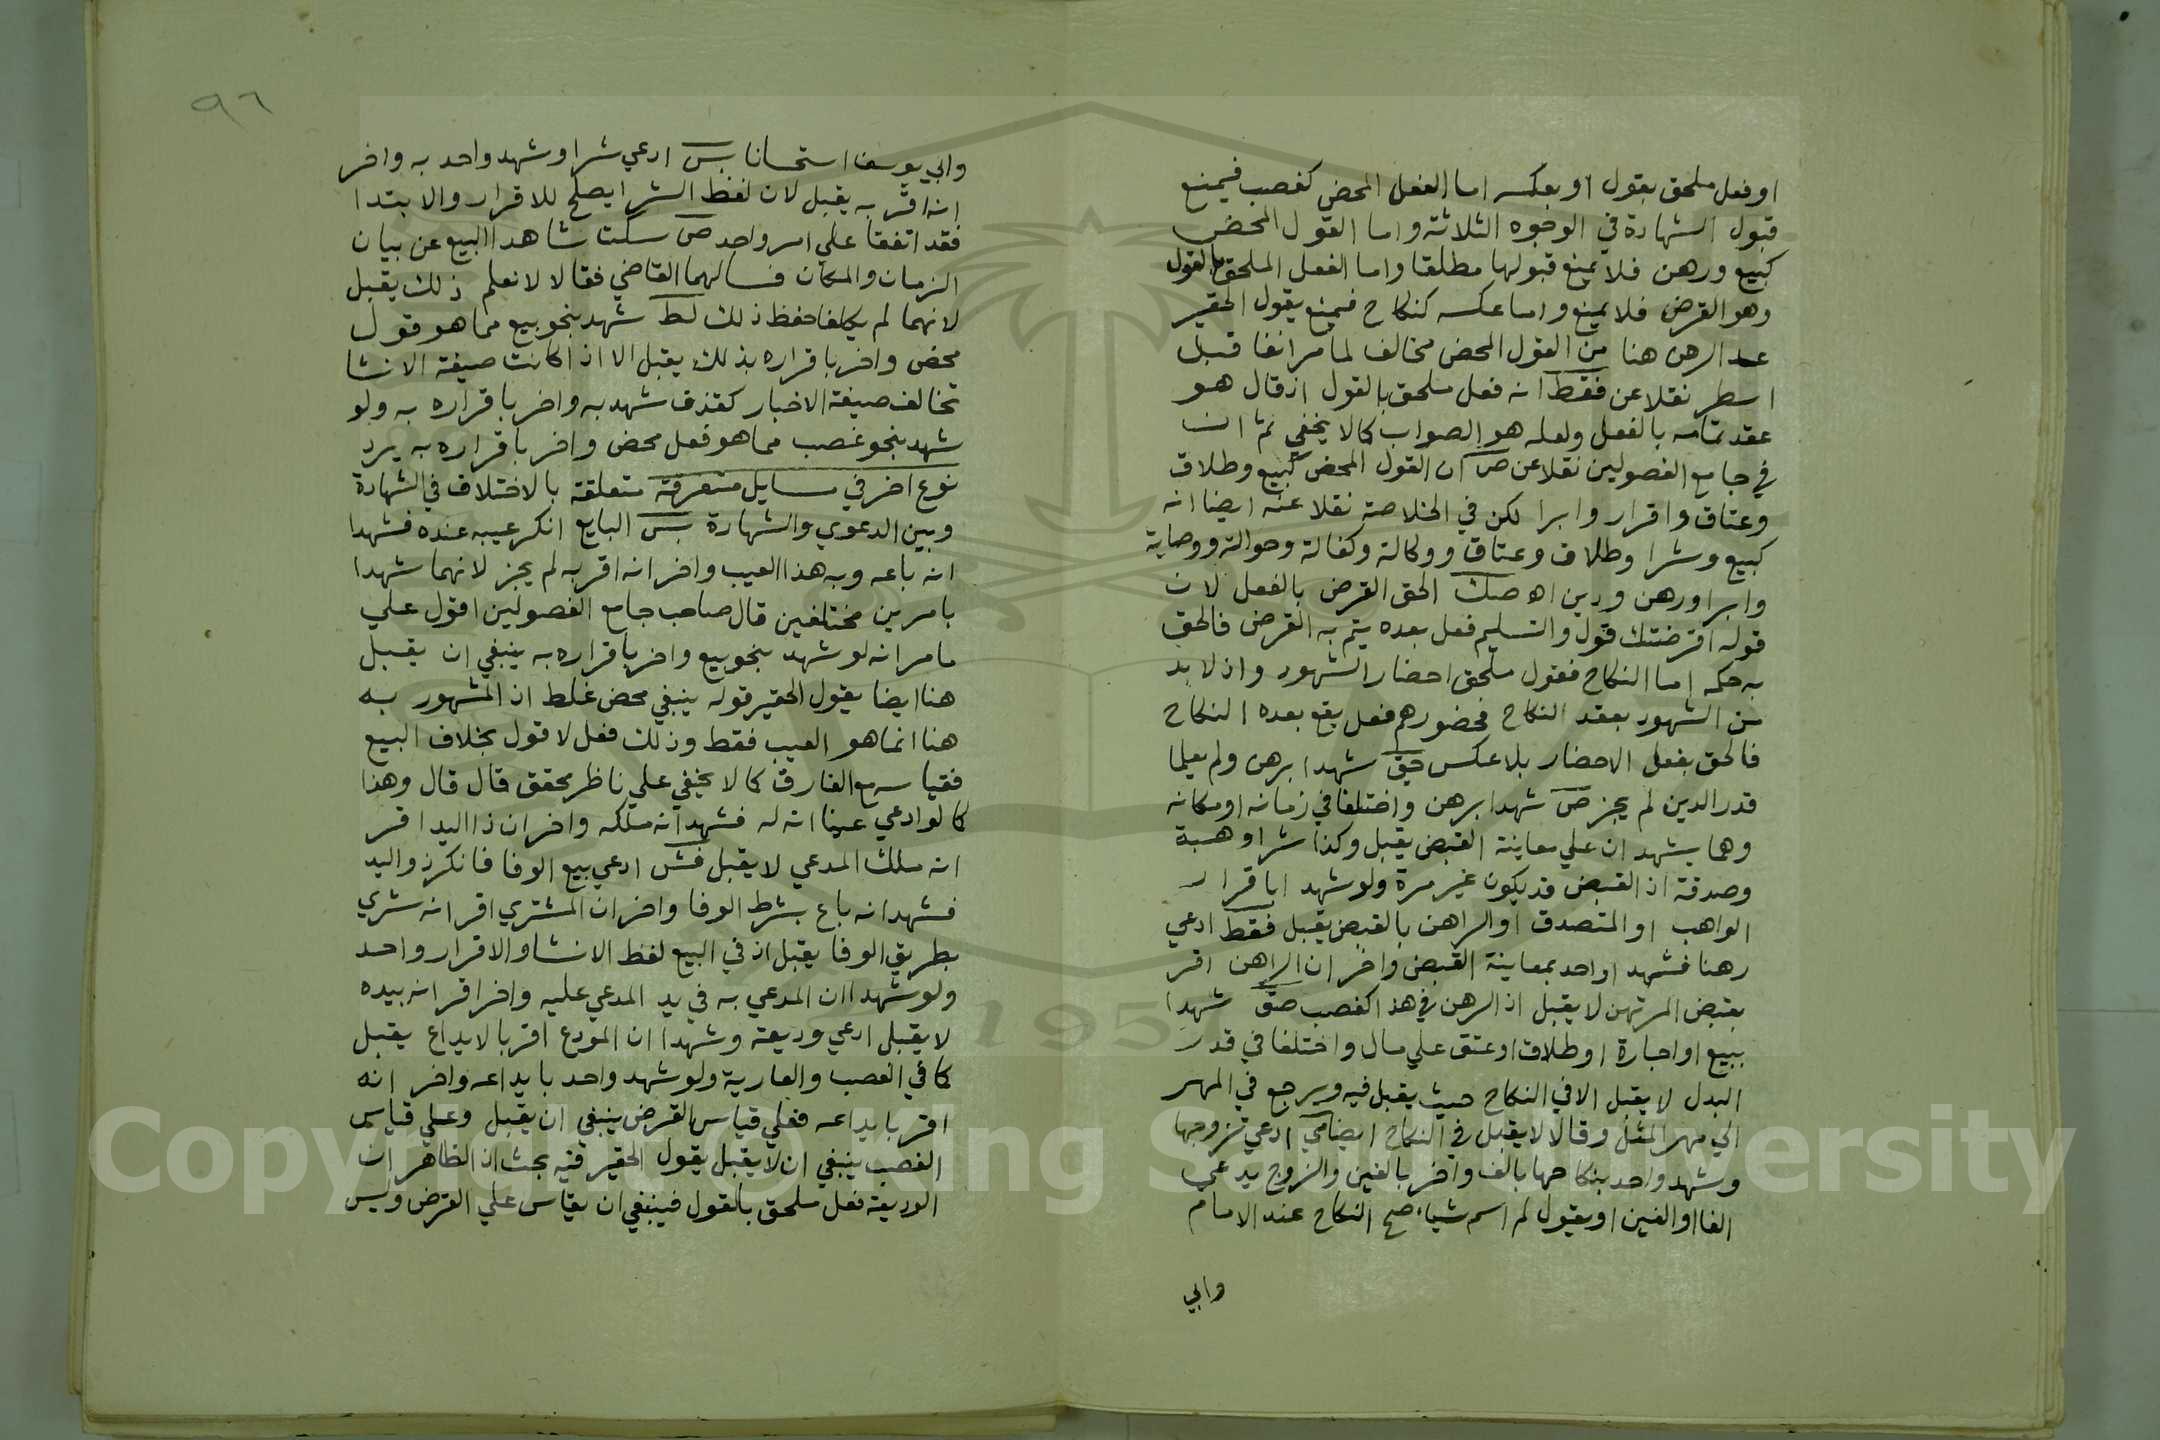 او فعل ملحق بقول او بعكسه اما الفعل المحض كغصب فيمنع
قبول الشهادة في الوجوه الثلاثة واما القول المحض
كبيع ورهن فلا يمنع قبولها مطلقا واما الفعل الملحق بالقول
وهو القرض فلا يمنع واما عكسه كنكاح فيمنع يقول الحقير
عد الرهن هنا من القول المحض مخالف لما مر انفا قبل
اسطر نقلا عن فقط انه فعل ملحق بالقول اذ قال هو
عقد تمامه بالفعل ولعله هو الصواب كما لا يخفي ثم ان
في جامع الفصولين نقلا عن ص ان القول المحض كبيع وطلاق
وعتاق واقرار وابرا لكن في الخلاصة نقلا عنه ايضا انه
كبيع وشرا وطلاق وعتاق ووكالة وكفالة وحوالة ووصاية
وابرا ورهن ودين اه صك الحق القرض بالفعل لان
قوله اقرضتك قول والتسليم فعل بعده يتم به القرض فالحق
به حكمه اما النكاح فقول ملحق احضار الشهود واذ لا بد
من الشهود بعقد النكاح فحضورهم فعل يقع بعده النكاح
فالحق بفعل الاحضار بلا عكس حيق شهدا برهن ولم يعلما
قدر الدين لم يجز ص شهدا برهن واختلفا في زمانه او مكانه
وهما يشهدان علي معاينة القبض يقبل وكذا شرا وهبة
وصدقة اذ القبض قد يكون غير مرة ولو شهدا باقرار
الواهب او المتصدق او الراهن بالقبض يقبل فقط ادعي
رهنا فشهد احد بمعاينة القبض واخر ان الراهن اقر
بقبض المرتهن لا يقبل اذ الرهن في هذا كغصب صق شهدا
ببيع او اجارة او طلاق او عتق علي مال واختلفا في قدر
البدل لا يقبل الا في النكاح حيث يقبل فيه ويرجع في المهر
الي مهر المثل وقالا لا يقبل في النكاح ايضا مي ادعي تزوجها
وشهد واحد بنكاحها بالف واخر بالفين والزوج يدعي
الفا او الفين او يقول لم اسم شياء صح النكاح عند الامام
وابي
٩٦
وابي يوسف استحسانا بس ادعي شرا وشهد واحد به واخر
انه اقر به يقبل لان لفظ الشرا يصلح للاقرار والابتدا
فقد اتفقا علي امر واحد ص سكت شاهدا البيع عن بيان
الزمان والمكان فسالهما القاضي فقالا لا نعلم ذلك يقبل
لانهما لم يكلفا حفظ ذلك لط شهد بنحو بيع مما هو قول
محض واخر باقراره بذلك يقبل الا اذا كانت صيغة الانشا
تخالف صيغة الاخبار كقذف شهد به واخر باقراره به ولو
شهد بنحو غصب مما هو فعل محض واخر باقراره به يرد
نوع اخر في مسايل متفرقة متعلقة بالاختلاف في الشهادة
وبين الدعوي والشهادة بس البايع انكر عيبه عنده فشهدا
انه باعه وبه هذا العيب واخر انه اقر به لم يجز لانهما شهدا
بامرين مختلفين قال صاحب جامع الفصولين اقول علي
ما مر انه لو شهد بنحو بيع واخر باقراره به ينبغي ان يقبل
هنا ايضا يقول الحقير قوله ينبغي محض غلط اذ المشهور به
هنا انما هو العيب فقط وذلك فعل لا قول بخلاف البيع
فقياسه مع الفارق كما لا يخفي علي ناظر محقق قال قال وهذا
كما لو ادعي عينا انه له فشهد انه ملكه واخر ان ذا اليد اقر
انه ملك المدعي لا يقبل فش ادعي بيع الوفا فانكر ذو اليد
فشهد انه باع بشرط الوفا واخر ان المشتري اقر انه شري
بطريق الوفا يقبل اذ في البيع لفظ الانشا والاقرار واحد
ولو شهدا ان المدعي به في يد المدعي عليه واخر اقر انه بيده
لا يقبل ادعي وديعة وشهدا ان المودع اقر بالايداع يقبل
كما في الغصب والعارية ولو شهد واحد بايداعه واخر انه
اقر بايداعه فعلي قياس القرض ينبغي ان يقبل وعلي قياس
الغصب ينبغي ان لا يقبل يقول الحقير فيه بحث اذ الظاهر ان
الوديعة فعل ملحق بالقول فينبغي ان يقاس علي القرض وليس
1957
Copyright © King Saud University